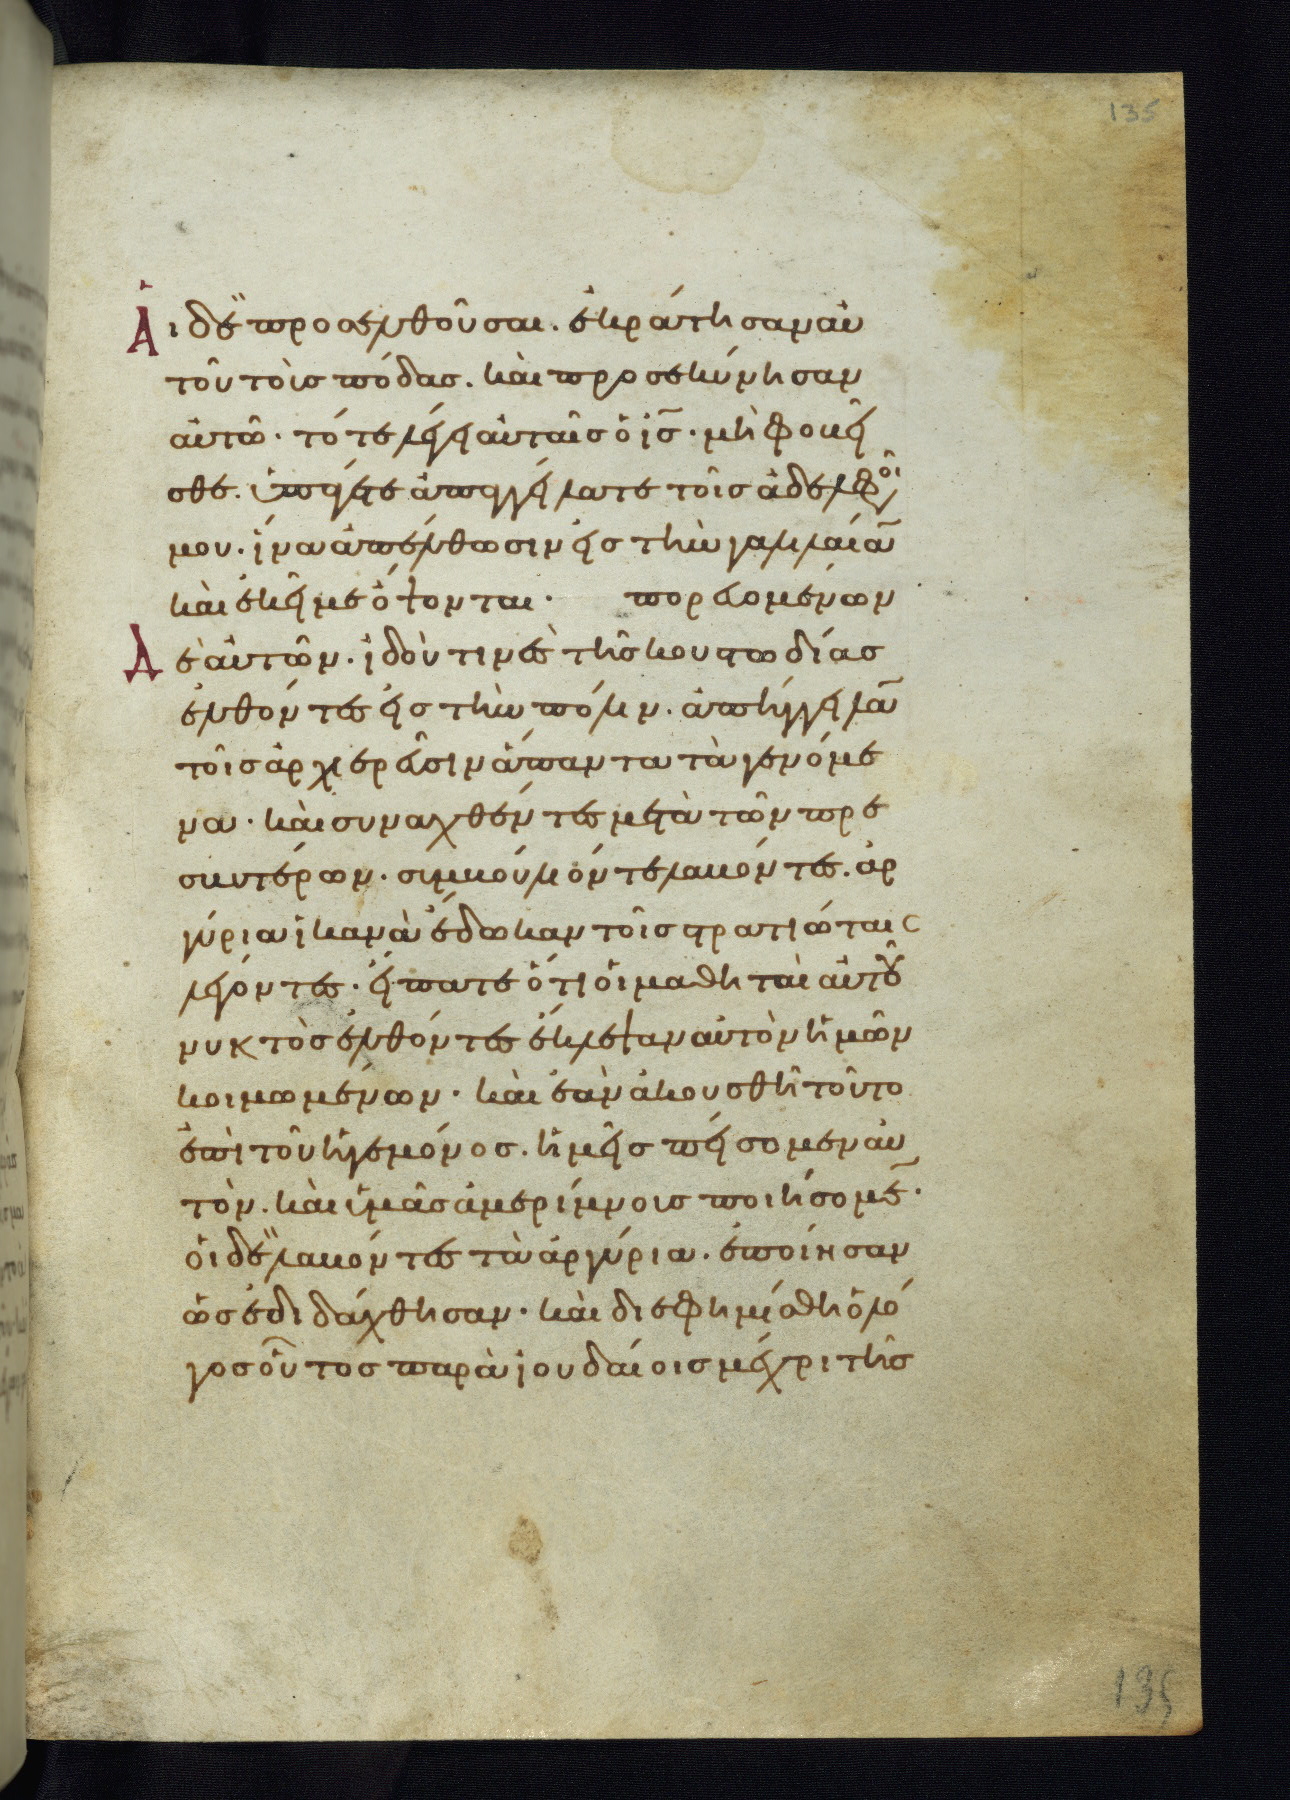 135
Αἱ δὲ προσελθοῦσαι. ἐκράτησαν αὐ
τοῦ τοῖς πόδας. καὶ προσεκύνησαν
αὐτῶ· τότε λέγει αὐταῖς ὁ ις̅· μὴ φοβεῖ
σθε. ὑπάγετε ἀπαγγείλατε τοῖς ἀδελφοῖ
μου. ἵνα ἀπέλθωσιν εἰς τὴν γαλιλαίαν̅
καὶ ἐκεῖ με ὄψονται· πορευομένων
Δὲ αὐτῶν. ἰδοὺ τινὲς τῆς κουστωδίας
ἐλθόντες εἰς τὴν πόλιν. ἀπήγγειλαν̅
τοῖς ἀρχιερεῦσιν ἅπαντα τὰ γενόμε
να· καὶ συναχθέντες μετὰ τῶν πρε
σβυτέρων. συμβούλιόν τε λαβόντες. ἀρ
γύρια ἱκανὰ ἔδωκαν τοῖς στρατιώταις
λέγοντες. εἴπατε ὅτι οἱ μαθηταὶ αὐτοῦ
νυκτὸς ἐλθόντες ἔκλεψαν αὐτὸν ἡμῶν
κοιμωμένων· καὶ ἐὰν ἀκουσθῆ τοῦτο
ἐπὶ τοῦ ἡγεμόνος. ἡμεῖς πείσομεν αὐ
τόν. καὶ ὑμᾶς ἀμερίμνοις ποιήσομε̅·
οἱ δὲ λαβόντες τὰ ἀργύρια. ἐποίησαν
ὡς ἐδιδάχθησαν· καὶ διεφημίσθη ὁ λό
γος οὗτος παρὰ ἰουδαίοις μέχρι τῆς
135